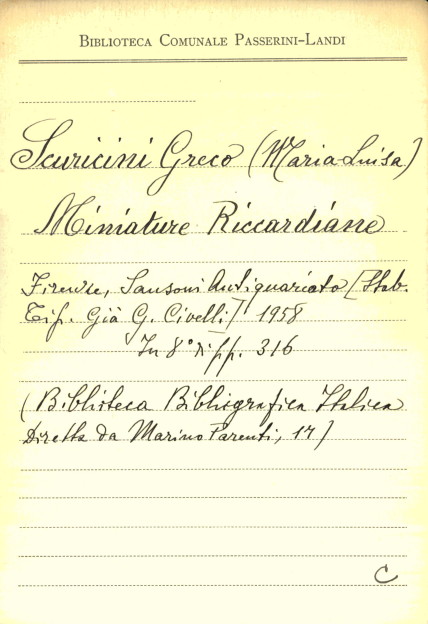 BIBLIOTECA COMUNALE PASSERINI-LANDI
Scuricini Greco (Maria Luisa)
Miniature Riccardiane
Firenze, Sansoni Antiquariato [Stab.
Tip. Già G. Civelli] 1958
In 8° di pp. 316
(Biblioteca Bibliografica Italica
Diretta da Marino Parenti, 17)
C